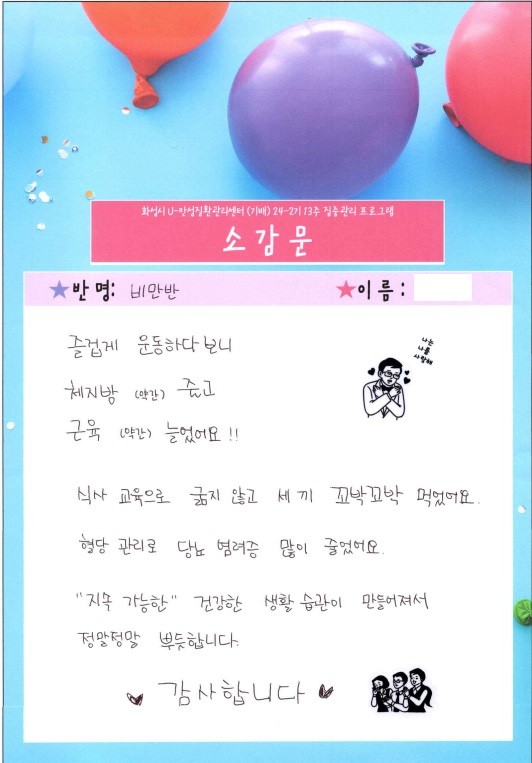 화성시 U-만성질환관리센터 (기배) 24-2기 13주 집중관리 프로그램
소감문
★반 명: 비만반 ★이 름 :
즐겁게 운동하다 보니
체지방 (약간) 줄고
근육 (약간) 늘었어요 !!
나는
나를
사랑해
식사 교육으로 굶지 않고 세 끼 꼬박꼬박 먹었어요.
혈당 관리로 당뇨 염려증 많이 줄었어요.
"지속 가능한" 건강한 생활 습관이 만들어져서
정말정말 뿌듯합니다.
감사합니다